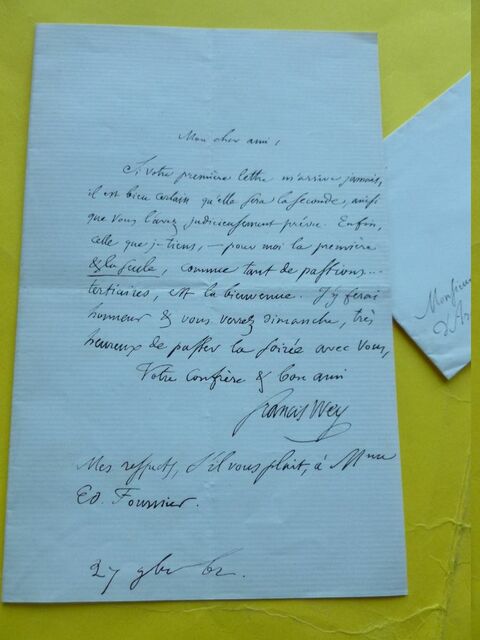 Mon cher ami,
Si votre première lettre m'arrive jamais,
il est bien certain qu'elle sera la seconde, ainsi
que vous l'avez judicieusement prévu. Enfin,
celle que je tiens, — pour moi la première
& la seule, comme tant de passions...
tertiaires, est la bienvenue. J'y ferai
honneur & vous verrez dimanche, très
heureux de passer la soirée avec vous,
Votre confrère & bon ami
Francis Wey
Mes respects, s'il vous plait, à Mme
Ed. Fournier.
27 9bre 62.
Monsieur